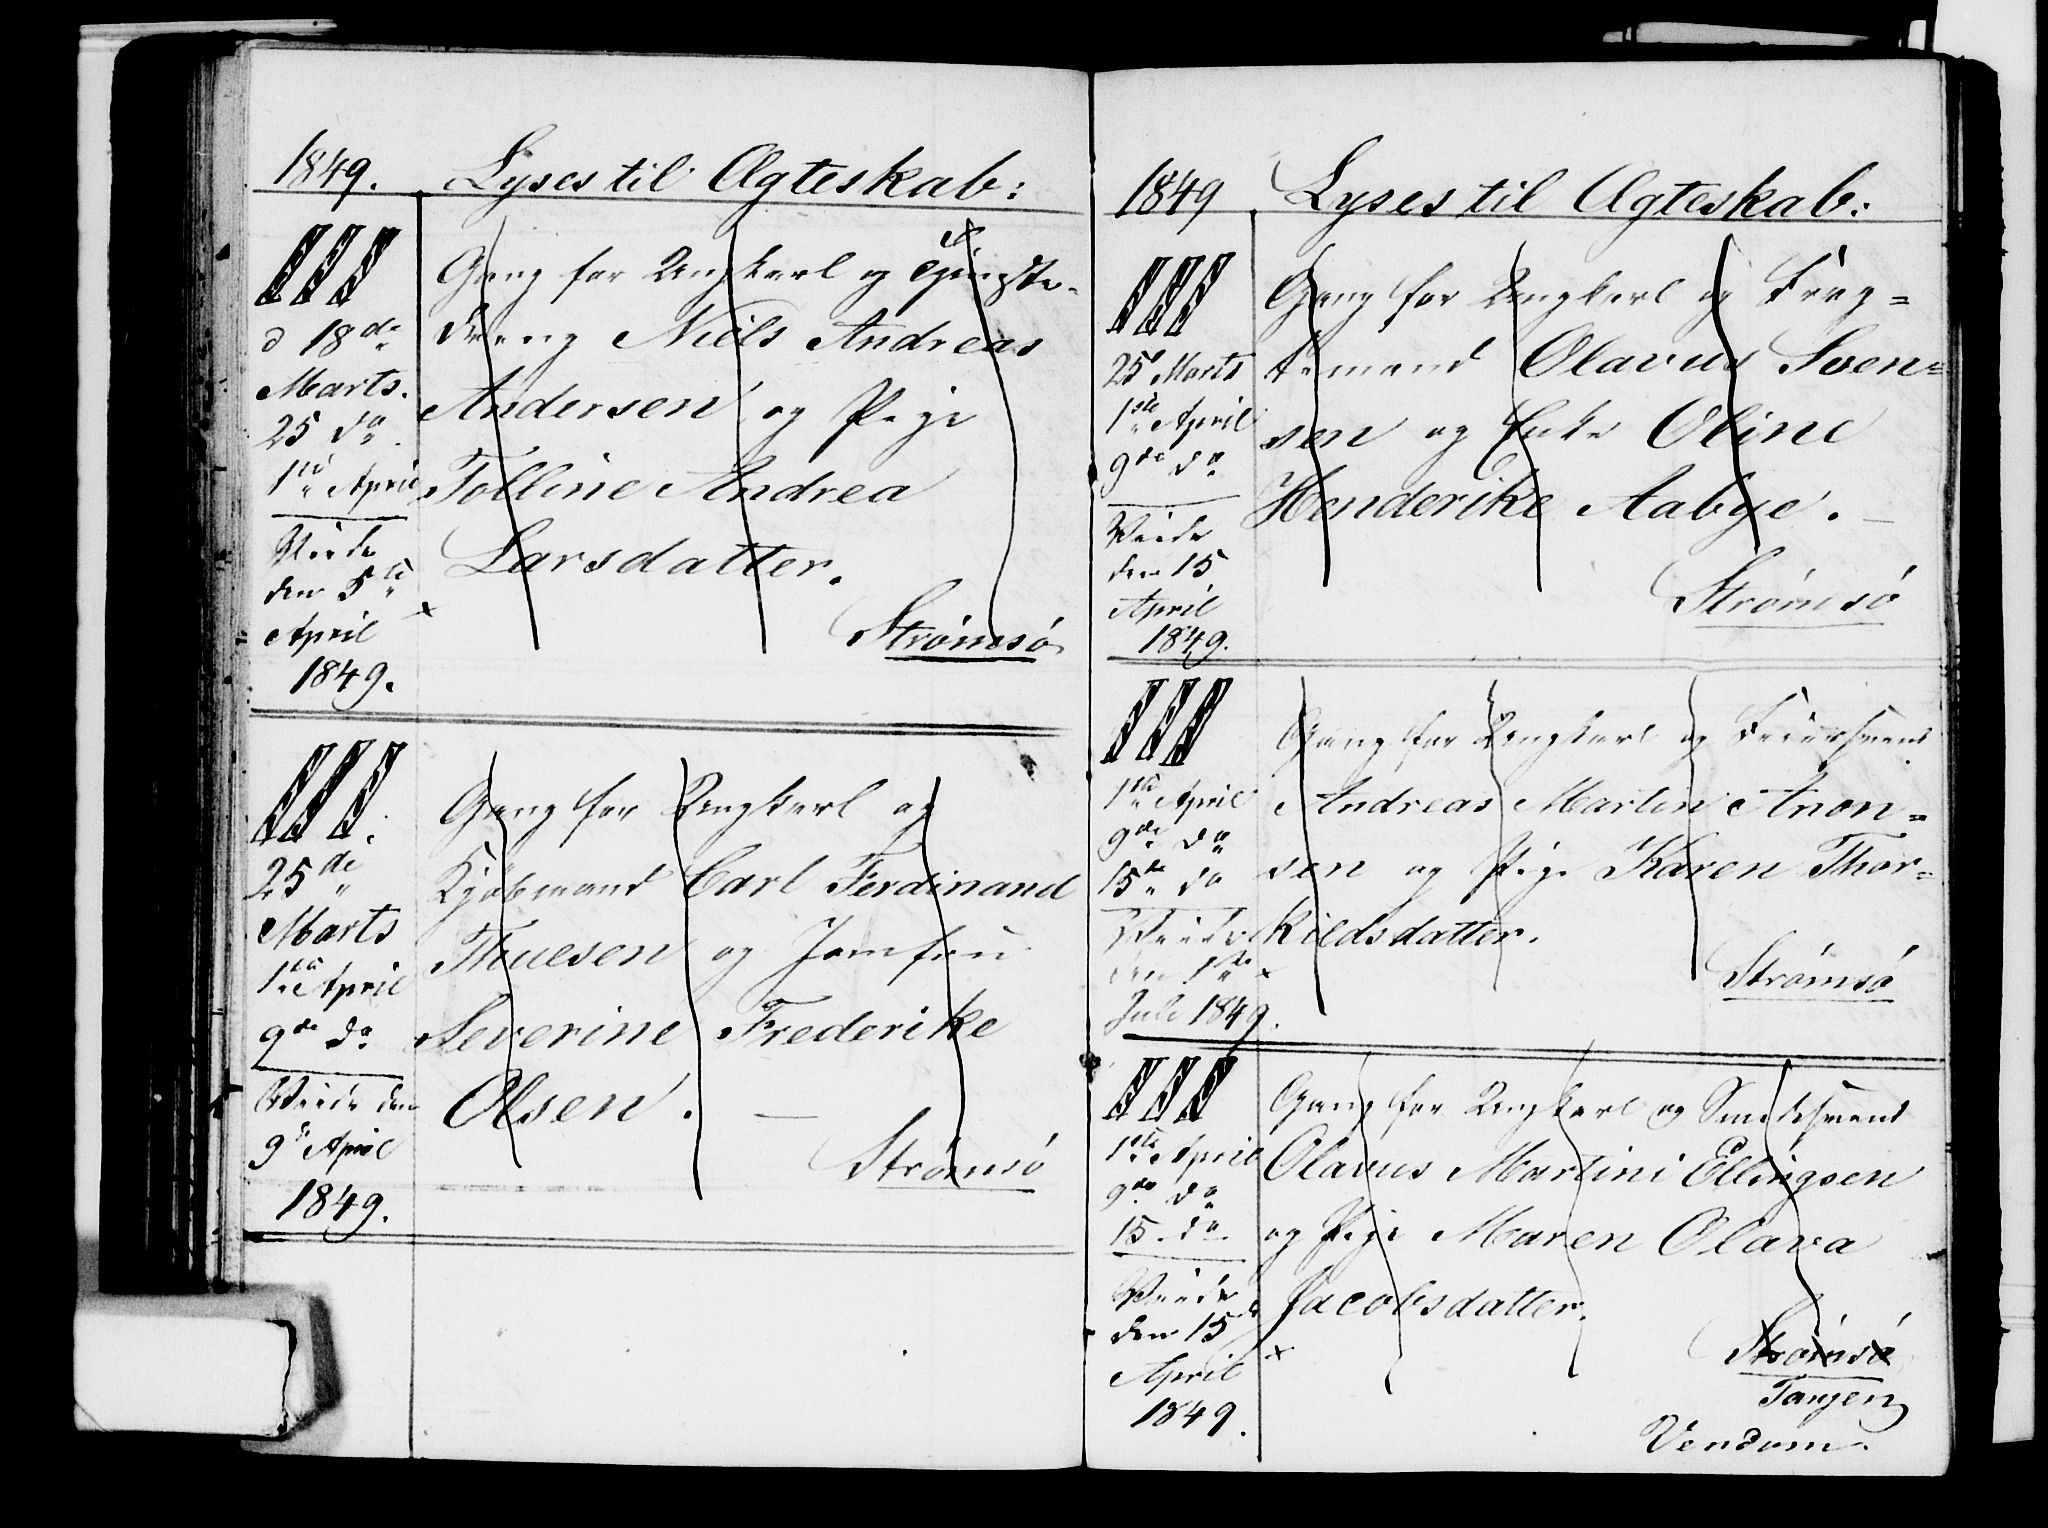 1849. Lyses til Ægteskab:
III
d 18de
Marts.
25 do
1ste April
Viede
den 5te
April
1849.
Gang for Ungkarl og Tjeneste-
dreng Niels Andreas
Andersen og Pige
Tolline Andrea
Larsdatter.
Strømsö
III.
25de
Marts
1ste April
9de do
Viede den
9de April
1849.
Gang for Ungkarl og
Kjöbmand Carl Ferdinand
Thuesen og Jomfru
Severine Frederike
Olsen. —
Strømsö
1849 Lyses til Ægteskab:
III
25 Marts
1ste April
9de do
Viede
den 15
April
1849.
Gang for Ungkarl og Frag=
temand Olavus Sven=
sen og Enke Oline
Henderike Aabye. —
Strömsö
III
1ste April
9de do
15de do
Viede
den 1ste
Juli 1849.
Gang for Ungkarl og Feiersvend
Andreas Martin Anon=
sen og Pige Karen Thor=
kildsdatter.
Strömsö
III
1ste April
9de do
15. do.
Viede
den 15de
April
1849.
Gang for Ungkarl og Smedesvend
Olavus Martini Ellingsen
og Pige Maren Olava
Jacobsdatter.
Strömsö
Tangen